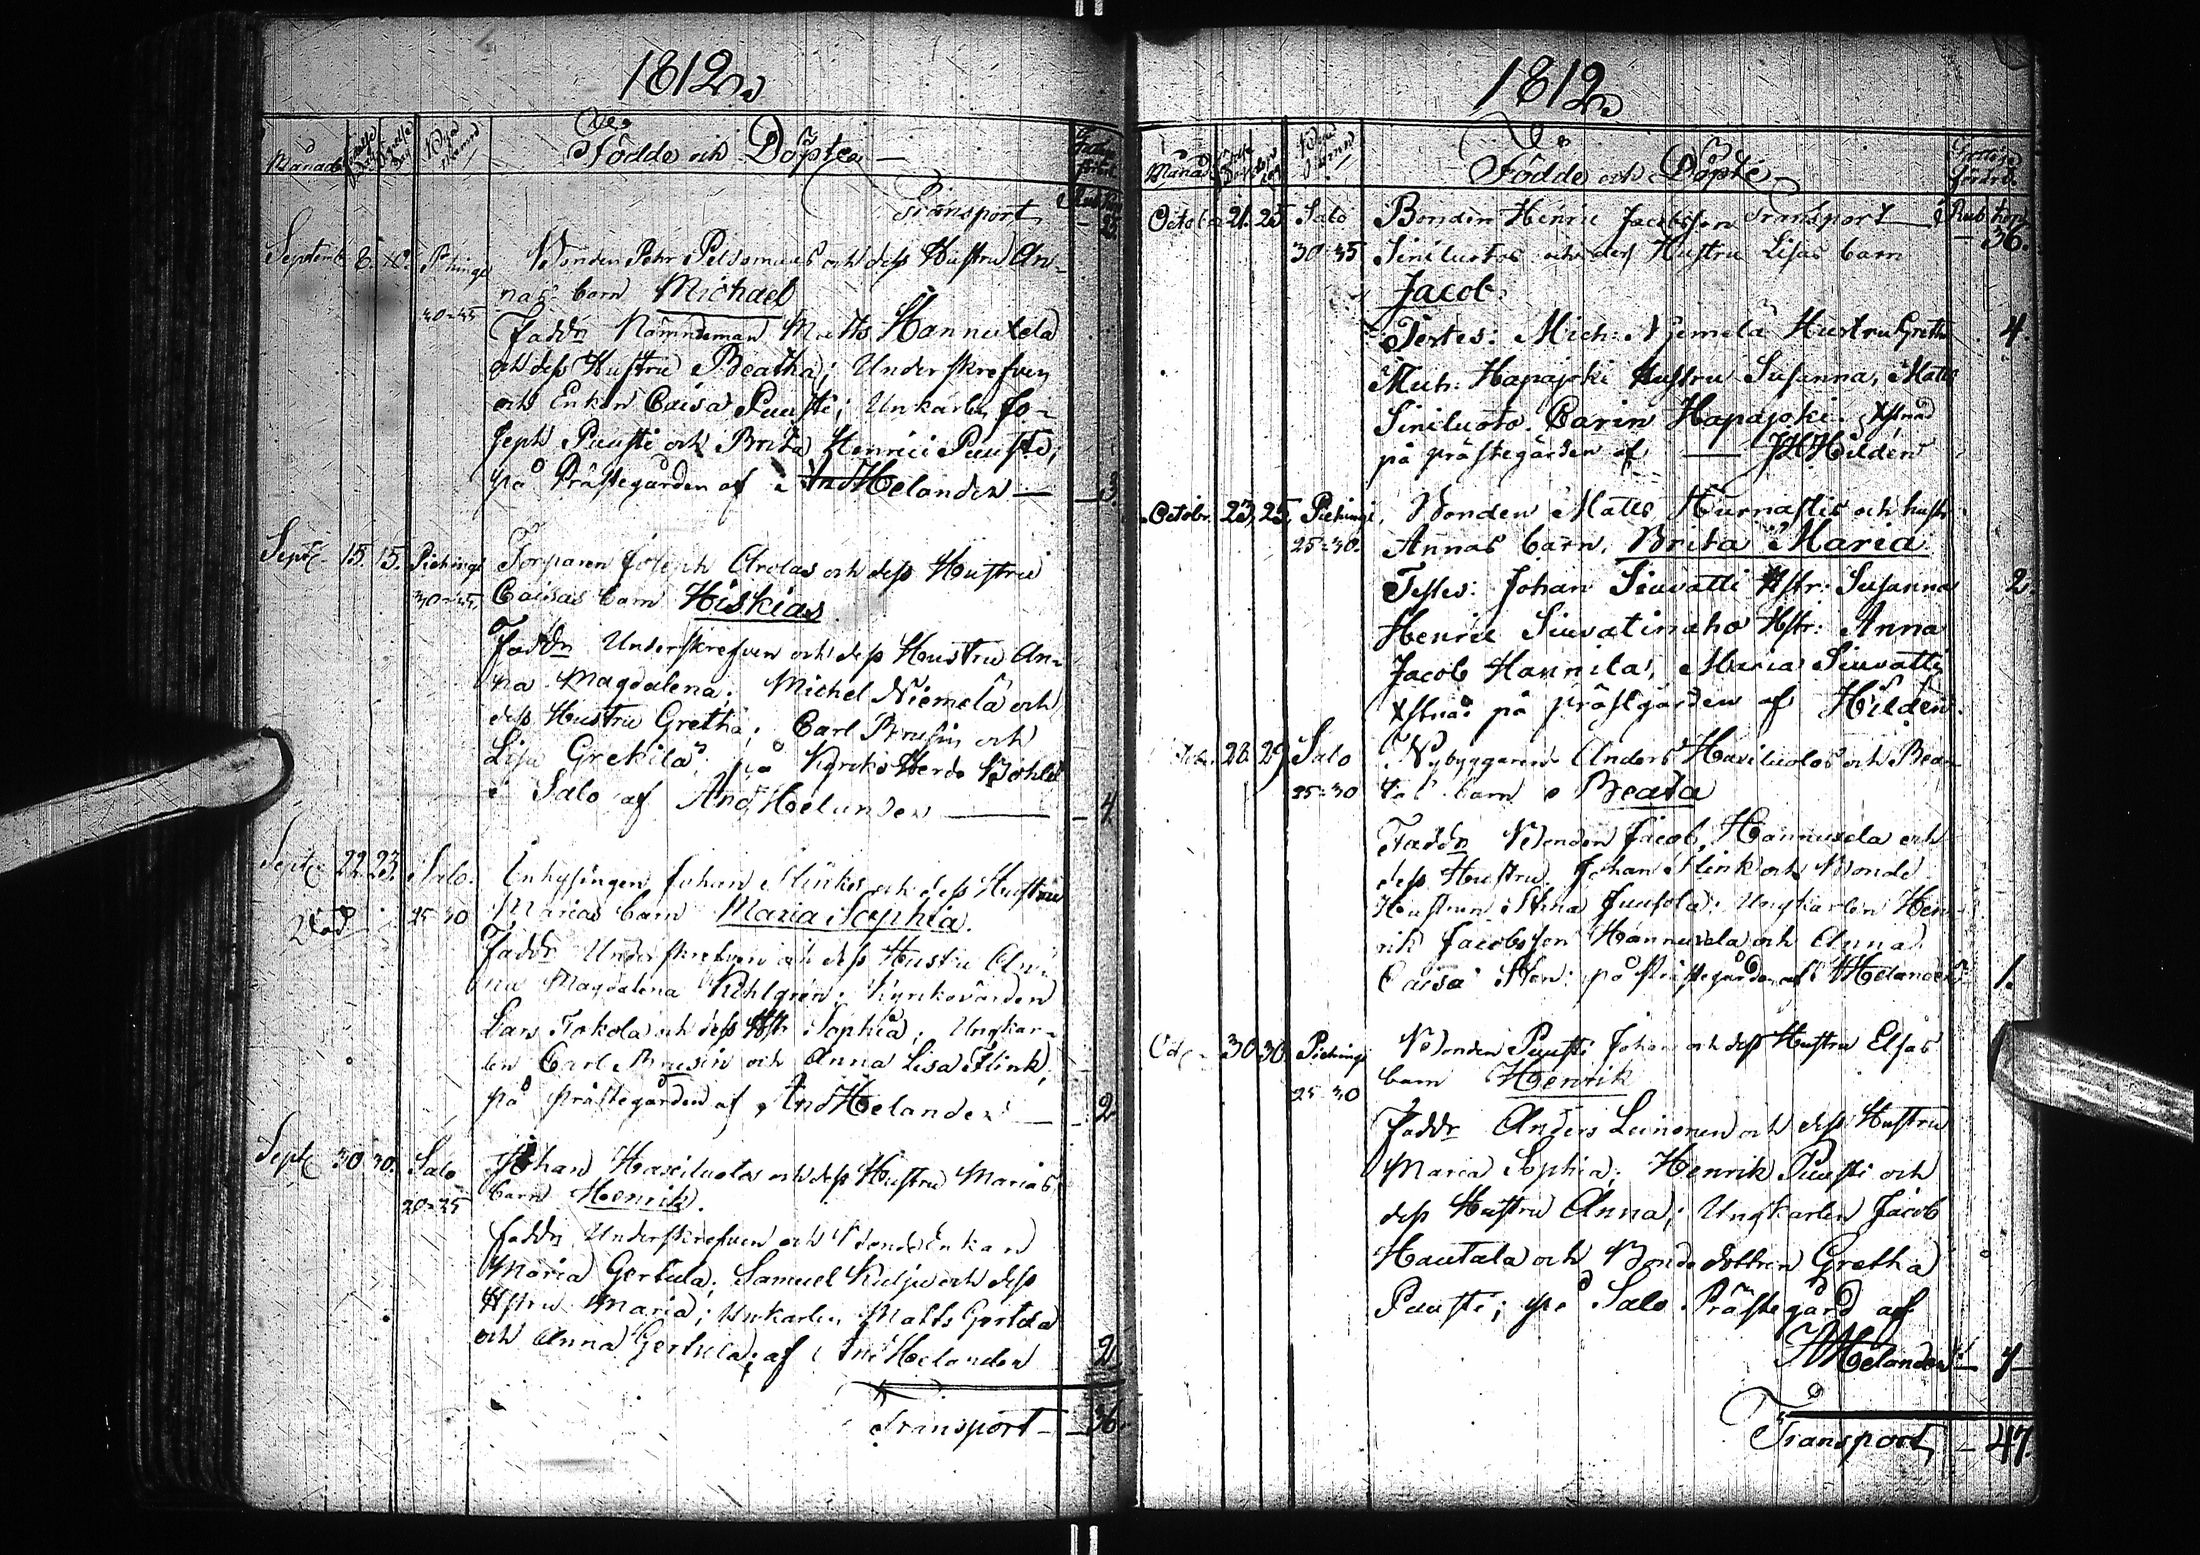 1812
Månad
De
Födde och Döpte
Transport
Septemb 8. Piehingi Bonden Pehr och dess Hustru An-
nas barn Michael
30-35
Faddr Nämndeman Matts Hannuxela
och dess Hustru Beatha; Underskrefven
och Enkan Caisa Puusti; Unkarlen Jo-
seph Puusti och Brita Henrici Puusti,
på Prästegården af And Helander — 3.
Sept. 15. 15. Piehingi Torparen Joseph Arolas och dess Hustru
30-35 Caisas barn Hiskias
Faddr Underskrefven och dess Hustru An-
na Magdalena; Michel Niemelä och
dess Hustru Gretha; Carl Brusin och
Lisa Grekilä; på Kyrko
i Salo af And Helander — 4
Sept. 22. 23. Salo. Inhysingen Johan och dess Hustru
Död 25-30 Marias barn Maria Sophia.
Faddr Underskrefven och dess Hustru An-
na Magdalena Kihlgren; Kyrkovärden
Lars Tokola och dess Hstr Sophia; Ungkar-
len Carl Brusin och Anna Lisa Flink,
på prästegården af And Helander — 2
Sept. 30. 30. Salo Johan Hasiluotos och dess Hustru Marias
20-25 barn Henrik.
Faddr Underskrefven och Bonde Enkan
Maria Gertula; Samuel Kulju och dess
Hstru Maria; Unkarlen Matts Gertula
och Anna Gertula; af And Helander 2
Transport — 36.
1812
Månad
De
Födde och Döpte
October 21. 25 Salo Bonden Henric Jacobsson Transport — 36.
30-35 Siniluotos och dess Hustru Lisas barn
Jacob.
Testes: Mich: Njemelä Hustru Greth 4.
Mich: Hapajoki Hustru Susanna, Matts
Siniluoto. Carin Hapajoki. Xstnad
på prästegården af — JH Hildén
Octobr. 23. 25. Piehingi. Bonden Matts Hurnastis och hustr
25-30. Annas barn, Brita Maria.
Testes: Johan Siuvatti Hstr: Susanna 2.
Henric Siuvatinaho Hstr: Anna
Jacob Hannila, Maria Siuvatti
Xstnad på prästgården af Hildén.
28. 29 Salo Nybyggaren Anders Hasiluotos och Bea-
25-30 tas barn Beata
Faddr Bonden Jacob Hannuxela och
dess Hustru Johan Flink och Bonde
Hustrun Stina Juusola: Ungkarlen Hen-
rik Jacobsson Hannuxela och Anna
Caisa på Prästegården af Helander 1.
Oct. 30. 30. Piehingi Bonden Puusti Johan och dess Hustru Elsas
25-30 barn Henrik
Faddr Anders Leinonen och dess Hustru
Maria Sophia; Henrik Puusti och
dess Hustru Anna; Ungkarlen Jacob
Hautala och Bonde dottren Gretha
Puusti; på Salo Prästegård af
Helander — 4
Transport — 47.